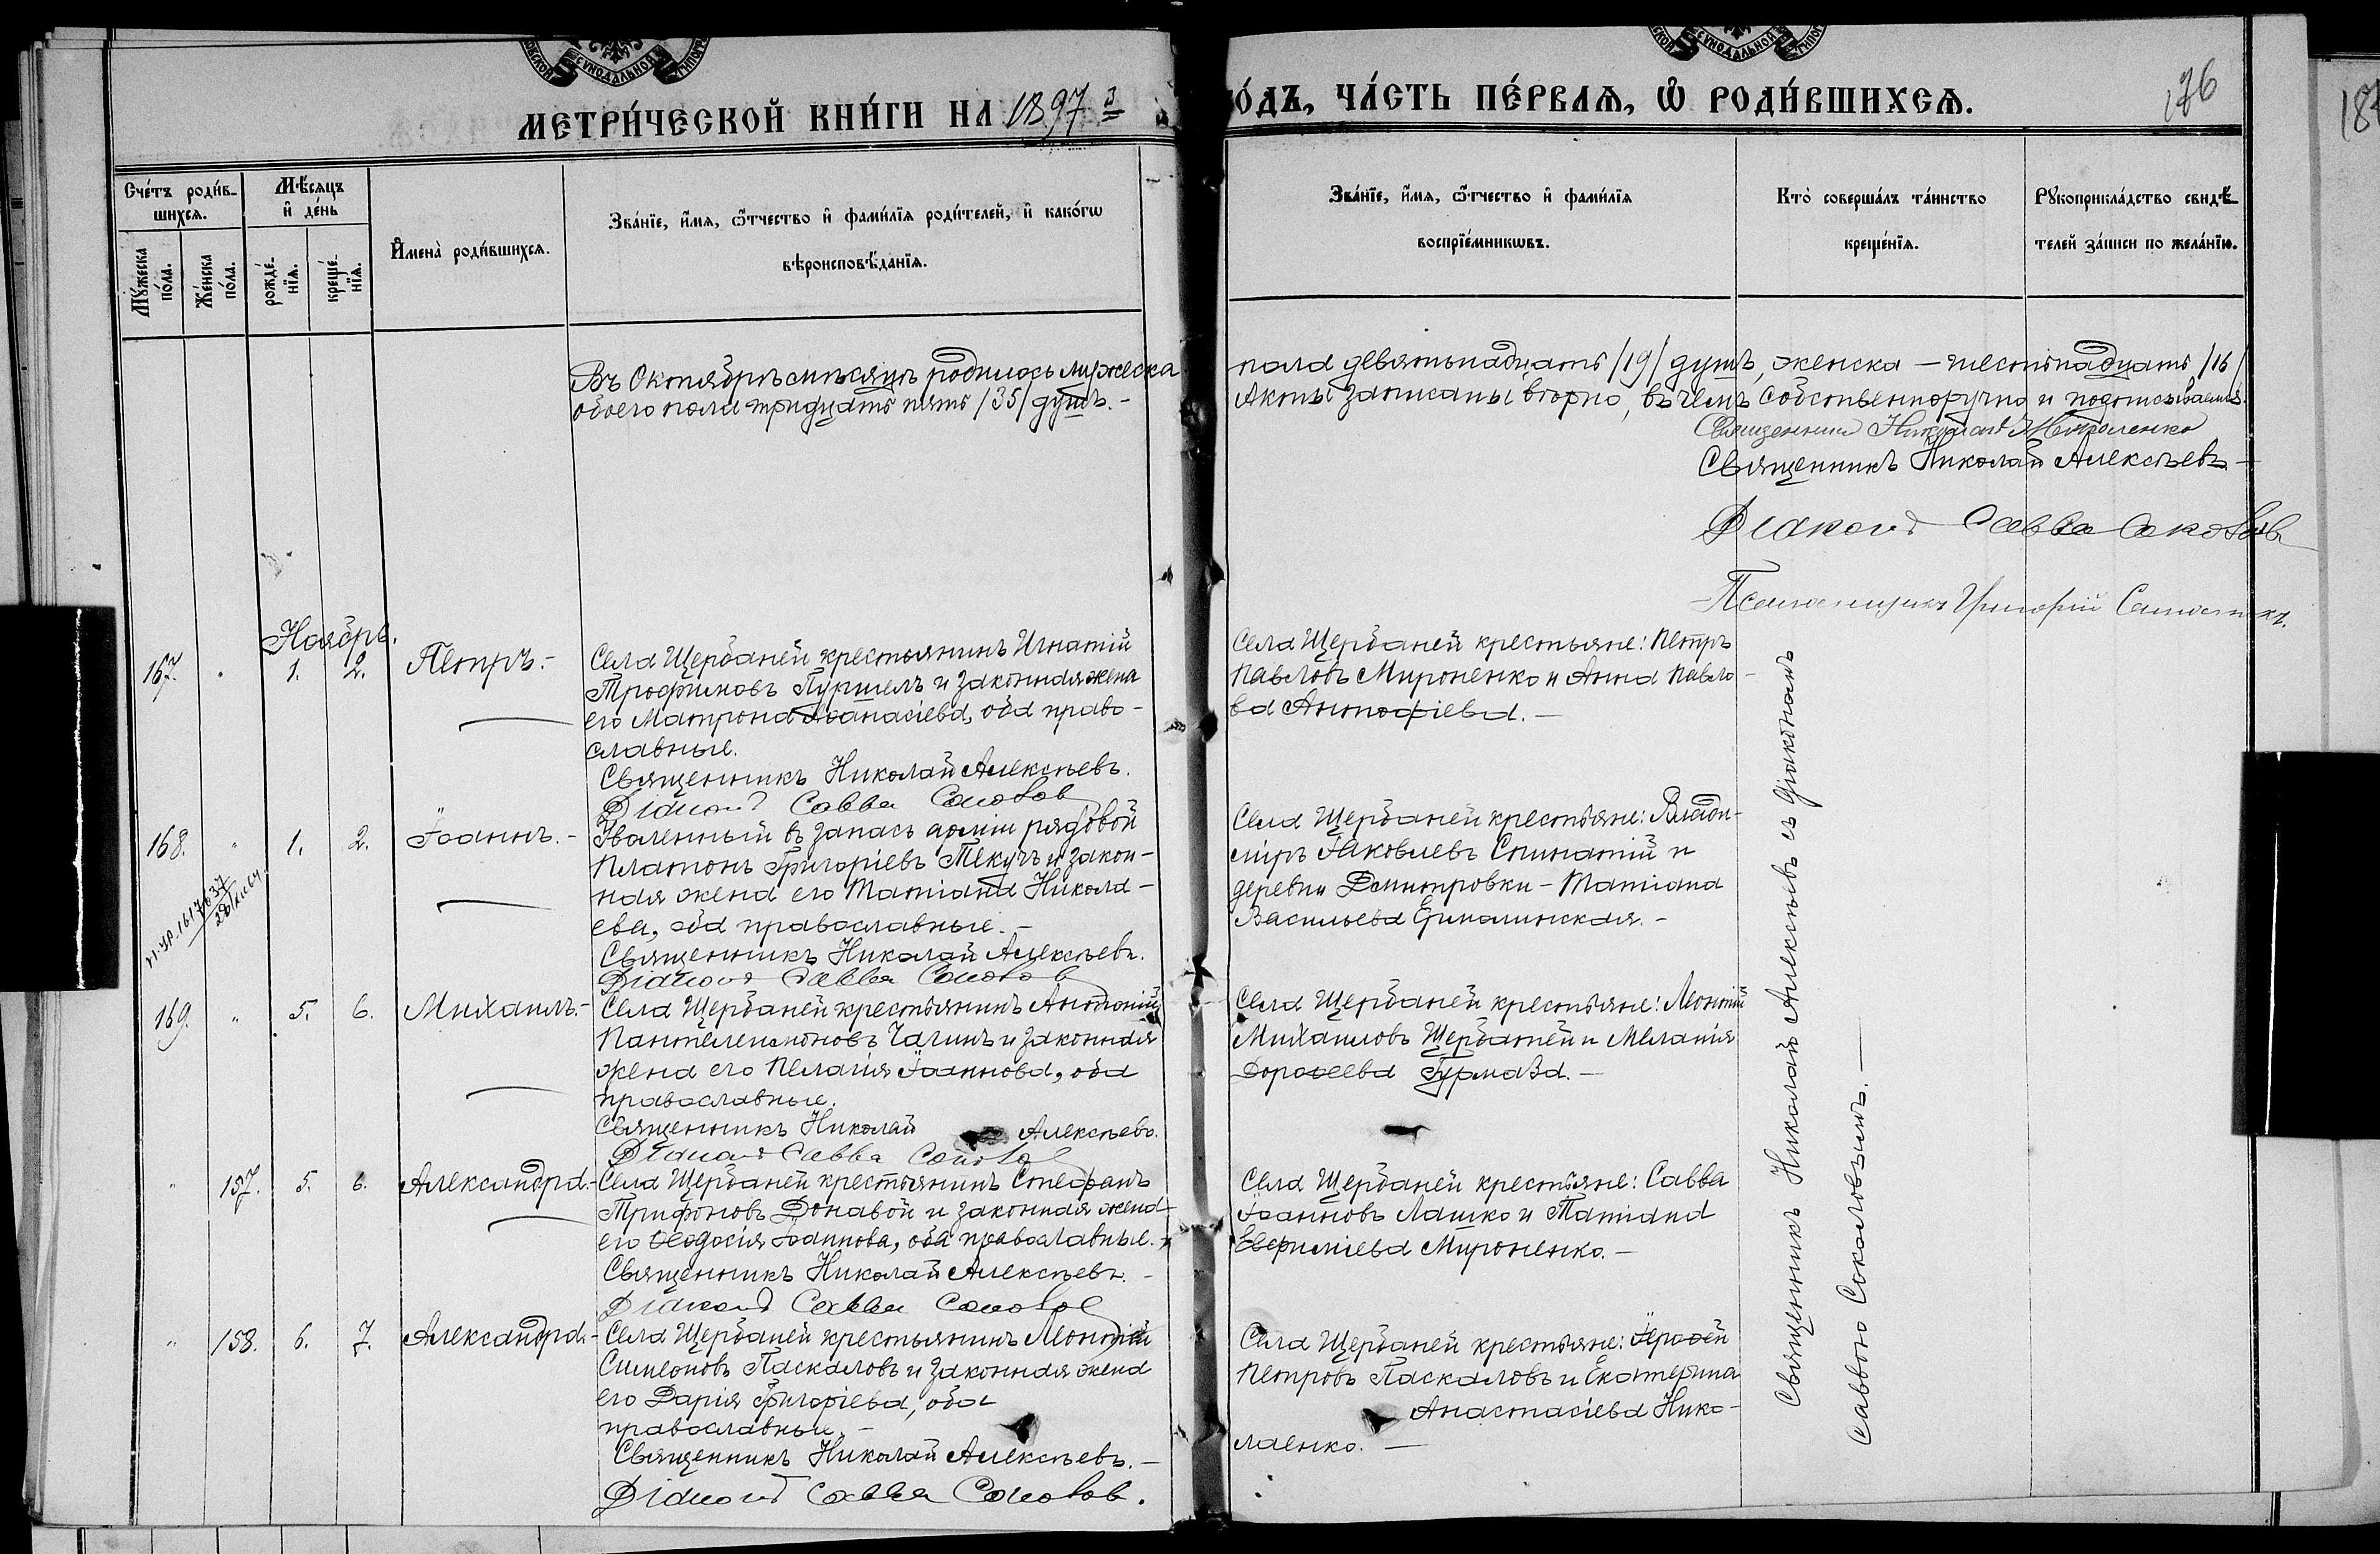 МЕТРИ́ЧЕСКОЙ КНИ́ГИ НА 1897 й
О́ДЪ, ЧА́СТЬ ПЕ́РВАѦ, Ѡ҆ РОДИ́ВШИХСѦ.
176
Сче́тъ роди́в-
шихсѧ.
Мꙋ́жеска по́ла.
Же́нска по́ла.
Мѣ́сѧцъ
и҆ де́нь
рожде́-
нїѧ.
креще́-
нїѧ.
И҆мена̀ роди́вшихсѧ.
Зва́нїе, и҆́мѧ, ѻ҆́тчество и҆ фами́лїѧ роди́телей, и҆ како́гѡ
вѣроисповѣ́данїѧ.
Зва́нїе, и҆́мѧ, ѻ҆́тчество и҆ фами́лїѧ
воспрїе́мникѡвъ.
Кто̀ соверша́лъ та́инство
креще́нїѧ.
Рꙋкоприкла́дство свидѣ́-
телей за́писи по жела́нїю.
Въ Октябрѣ мѣсяцѣ родилось мужеска
обоего пола тридцать пять /35/ душъ.-
пола девятьнадцать /19/ душъ, женска - шестьнадцать /16/
Акты записаны вѣрно, въ чемъ собственноручно и подписываемся.
Священникъ Николай
Священникъ Николай Алексѣевъ
Діаконъ Савва Соколовъ
Псаломщикъ Григорій
Ноябрь.
167. " 1. 2. Петръ.-
Села Щербаней крестьянинъ Игнатій
Трофимовъ Пуришелъ и законная жена
его Матрона Аѳанасіева, оба право-
славные.
Священникъ Николай Алексѣевъ.
Діаконъ Савва Соколов
Села Щербаней крестьяне: Петръ
Павловъ Мироненко и Анна Павло-
ва Антофіева.-
168. " 1. 2. Іоаннъ.-
Уволенный въ запасъ арміи рядовой
Платонъ Григоріевъ Текучъ и закон-
ная жена его Татіана Никола-
ева, оба православные.-
Священникъ Николай Алексѣевъ.
Діаконъ Савва Соколов
Села Щербаней крестьяне: Влади-
міръ Іаковлевъ Спинатій и
деревни Дмитровки - Татіана
Васильева Ермолинская.-
169. " 5. 6. Михаилъ.-
Села Щербаней крестьянинъ Антоній
Пантелеимоновъ Чагинъ и законная
жена его Пелагія Іоаннова, оба
православные.
Священникъ Николай Алексѣевъ.
Діаконъ Савва Соколов
Села Щербаней крестьяне: Леонтій
Михаиловъ Щербатей и Меланія
Дороѳеева Гурмаза.-
" 157. 5. 6. Александра.-
Села Щербаней крестьянинъ Стефанъ
Трифоновъ Донавой и законная жена
его Ѳеодосія Іоаннова, оба православные.
Священникъ Николай Алексѣевъ.-
Діаконъ Савва Соколов
Села Щербаней крестьяне: Савва
Іоанновъ Лашко и Татіана
Евфиміева Мироненко.-
" 158. 6. 7. Александра.-
Села Щербаней крестьянинъ Леонтій
Симеоновъ Паскаловъ и законная жена
его Дарія Григоріева, оба
православные.-
Священникъ Николай Алексѣевъ.-
Діаконъ Савва Соколов.
Села Щербаней крестьяне: Іероѳей
Петровъ Паскаловъ и Екатерина
Анастасіева Нико-
лаенко.-
Священникъ Николай Алексѣевъ съ діакономъ
Саввою Соколовымъ.-